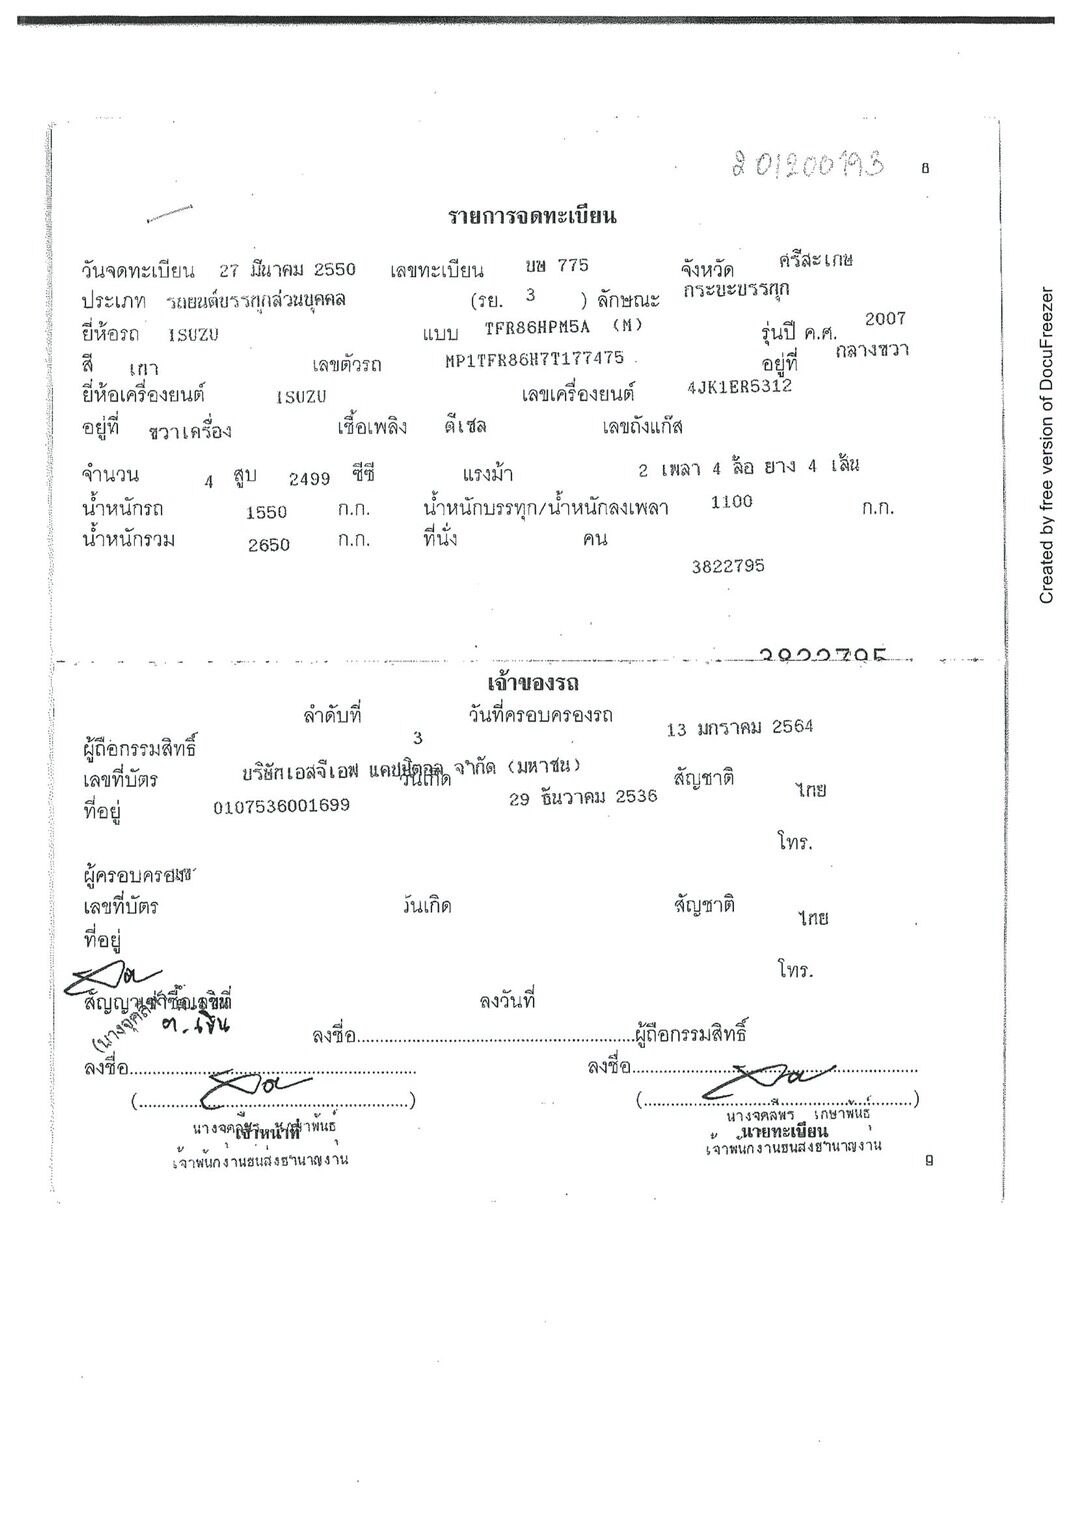 201200193 8
รายการจดทะเบียน
วันจดทะเบียน 27 มีนาคม 2550 เลขทะเบียน บษ 775 จังหวัด ศรีสะเกษ
ประเภท รถยนต์บรรทุกส่วนบุคคล (รย. 3 ) ลักษณะ กระบะบรรทุก
ยี่ห้อรถ ISUZU แบบ TFR86HPM5A (M) รุ่นปี ค.ศ. 2007
สี เทา เลขตัวรถ MP1TFR86H7T177475 อยู่ที่ กลางขวา
ยี่ห้อเครื่องยนต์ ISUZU เลขเครื่องยนต์ 4JK1ER5312
อยู่ที่ ขวาเครื่อง เชื้อเพลิง ดีเซล เลขถังแก๊ส
จำนวน 4 สูบ 2499 ซีซี แรงม้า 2 เพลา 4 ล้อ ยาง 4 เส้น
น้ำหนักรถ 1550 ก.ก. น้ำหนักบรรทุก/น้ำหนักลงเพลา 1100 ก.ก.
น้ำหนักรวม 2650 ก.ก. ที่นั่ง คน
3822795
3822795
เจ้าของรถ
ลำดับที่ 3 วันที่ครอบครองรถ 13 มกราคม 2564
ผู้ถือกรรมสิทธิ์ บริษัทเอสจีเอฟ แคปปิตอล จำกัด (มหาชน)
เลขที่บัตร 0107536001699 วันเกิด 29 ธันวาคม 2536 สัญชาติ ไทย
ที่อยู่
โทร.
ผู้ครอบครอง
เลขที่บัตร วันเกิด สัญชาติ ไทย
ที่อยู่
โทร.
สัญญาเช่าซื้อเลขที่ ลงวันที่
ลงชื่อ.............................................ผู้ถือกรรมสิทธิ์
ลงชื่อ............................................. ลงชื่อ.............................................
(.............................................) (.............................................)
เจ้าหน้าที่ นายทะเบียน
เจ้าพนักงานขนส่งชำนาญงาน เจ้าพนักงานขนส่งชำนาญงาน
9
Created by free version of DocuFreezer